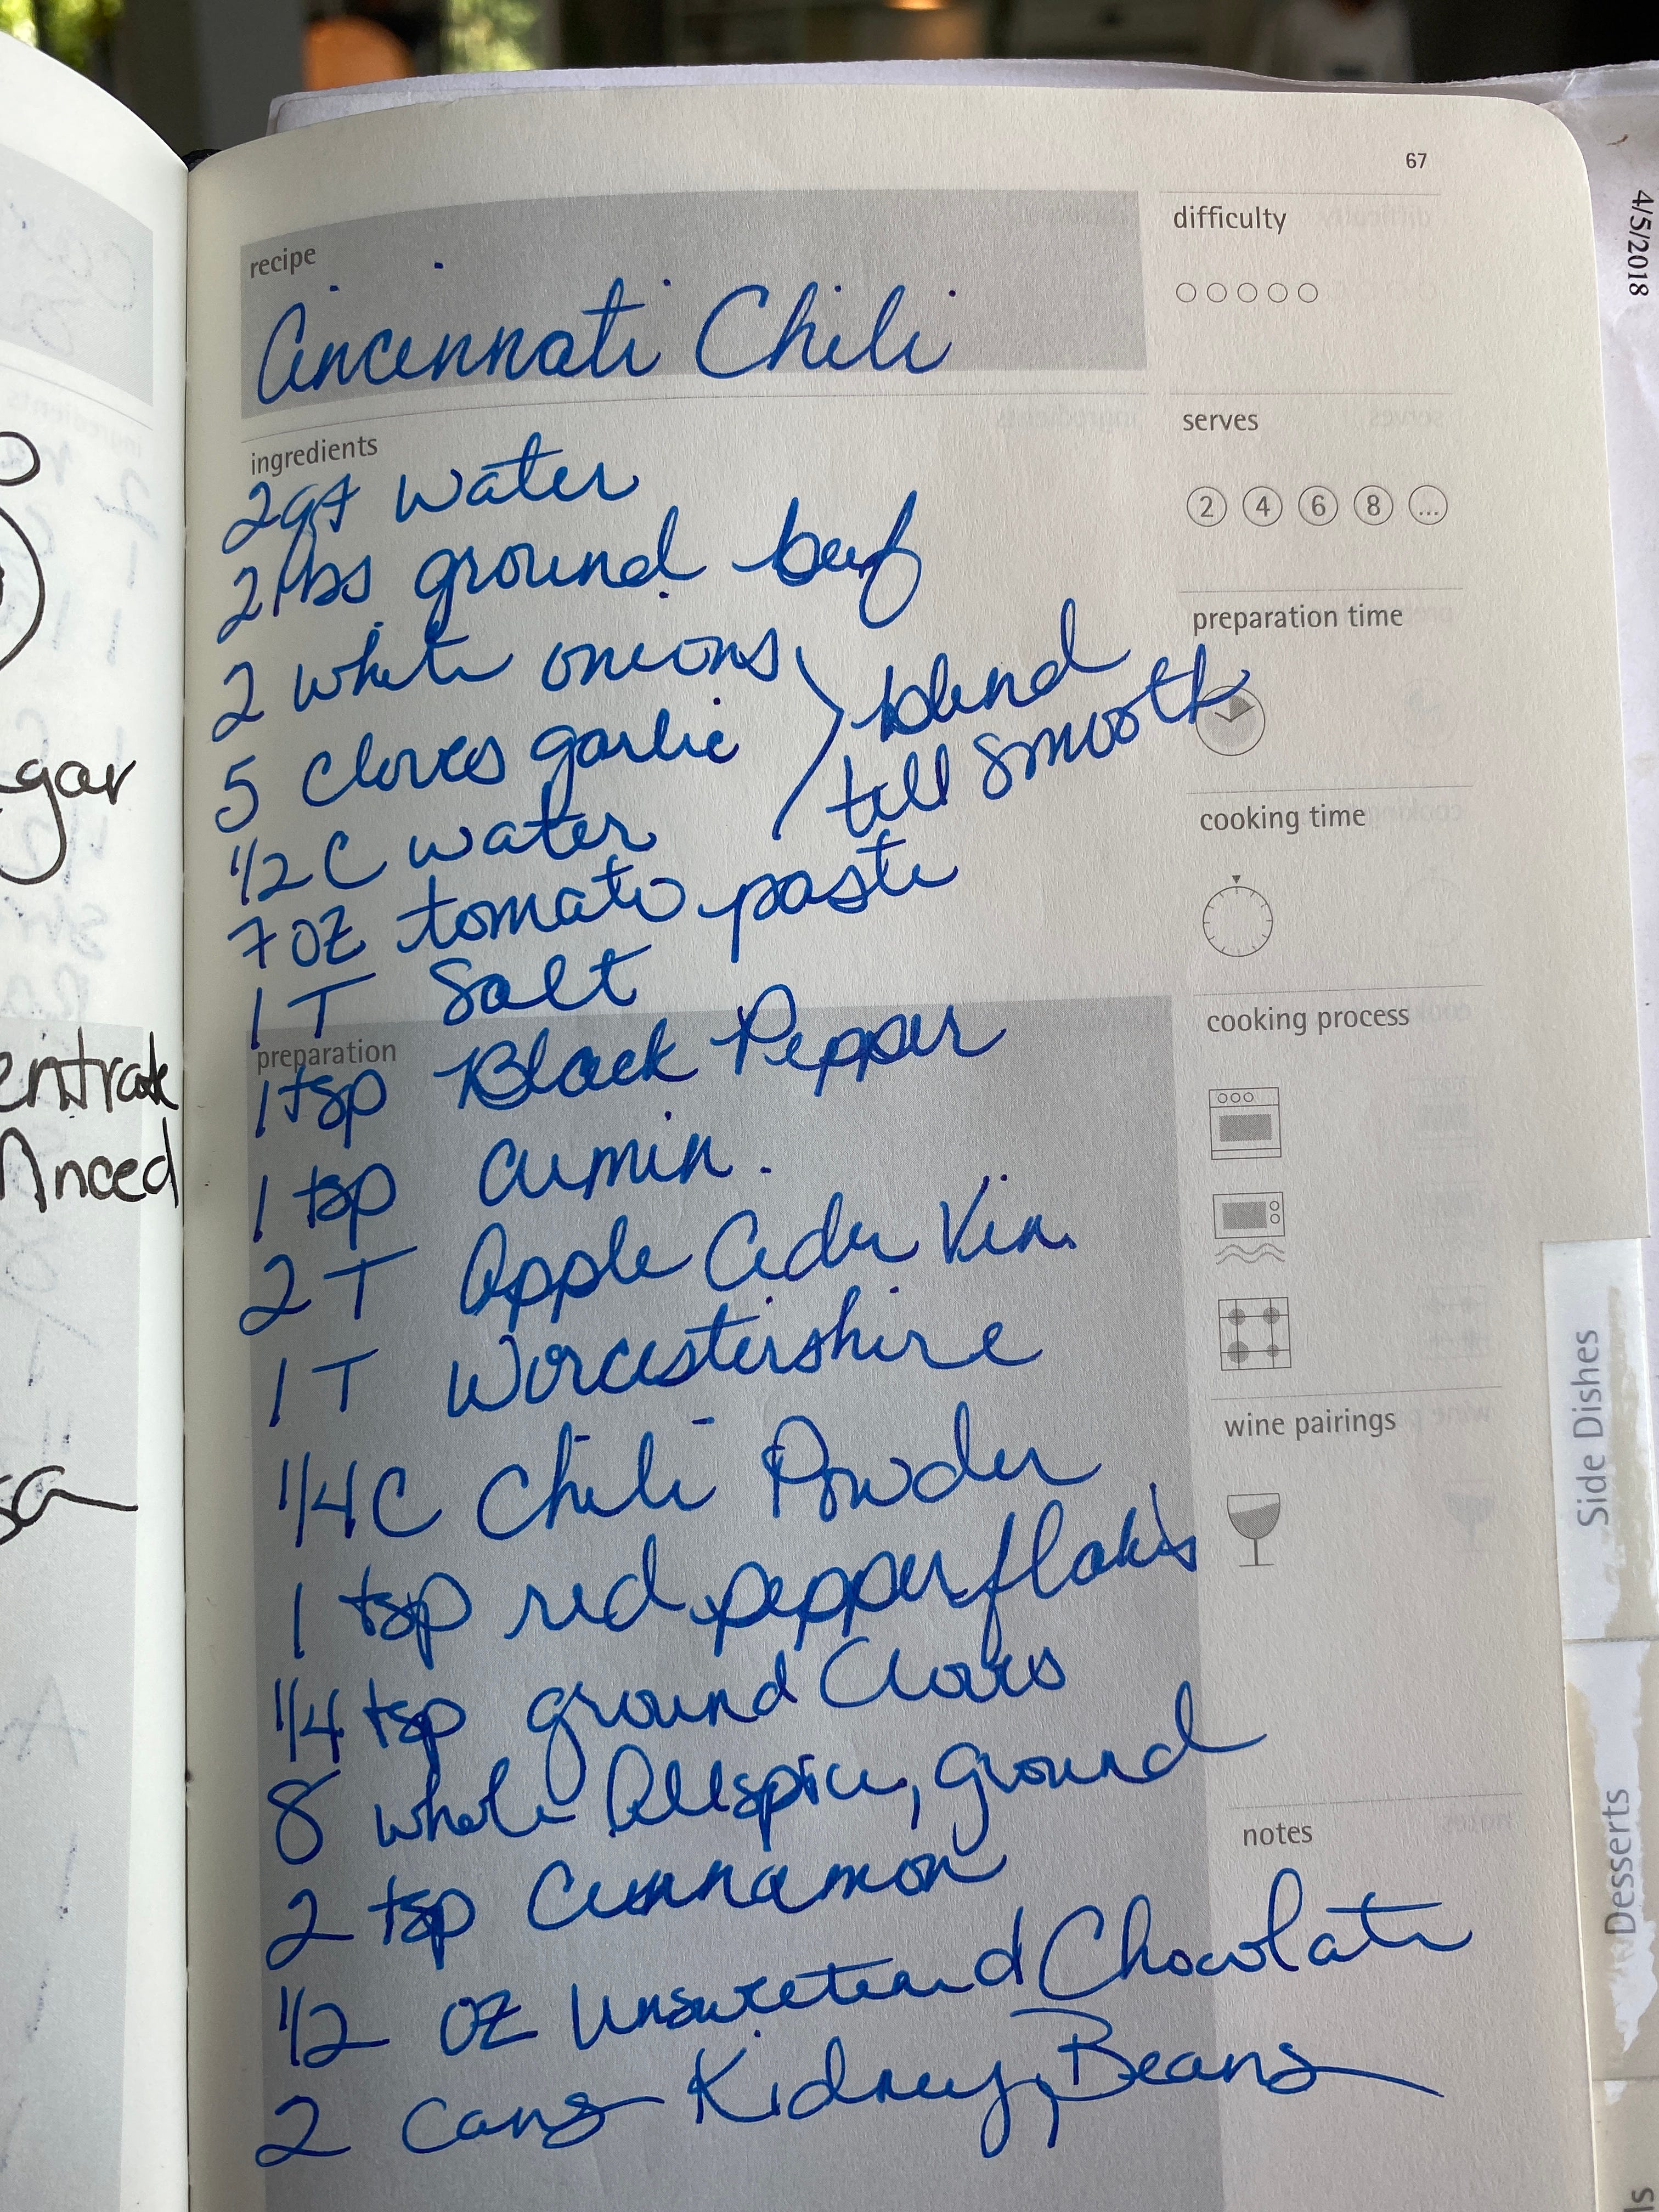 67
recipe
Cincinnati Chili
ingredients
2qt water
2lbs ground beef
2 white onions
5 cloves garlic
1/2 C water
blend
till smooth
7 oz tomato paste
1 T Salt
preparation
1 tsp Black Pepper
1 tsp cumin.
2 T Apple Cider Vin.
1 T Worcestershire
1/4 C Chili Powder
1 tsp red pepper flakes
1/4 tsp ground Cloves
8 whole Allspice, ground
2 tsp Cinnamon
1/2 oz Unsweetened Chocolate
2 cans Kidney Beans
difficulty
serves
2 4 6 8 ...
preparation time
cooking time
cooking process
wine pairings
notes
4/5/2018
Side Dishes
Desserts
gar
entrate
nced
sa